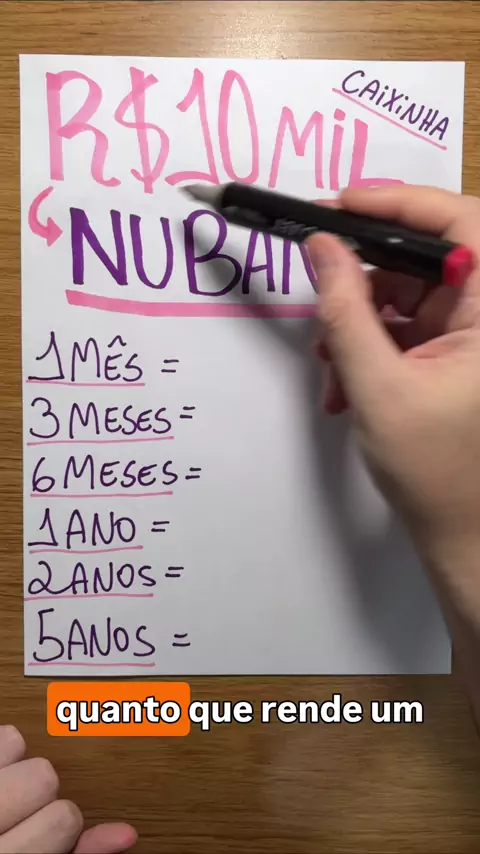 R$10 MIL
CAIXINHA
1 MÊS =
3 MESES =
6 MESES =
1 ANO =
2 ANOS =
5 ANOS =
quanto que rende um